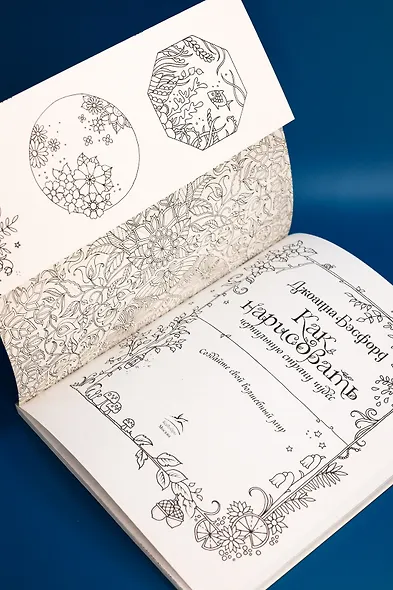 Джоанна Бэсфорд
Как
нарисовать
чернильную страну чудес
Создайте свой волшебный мир
Москва